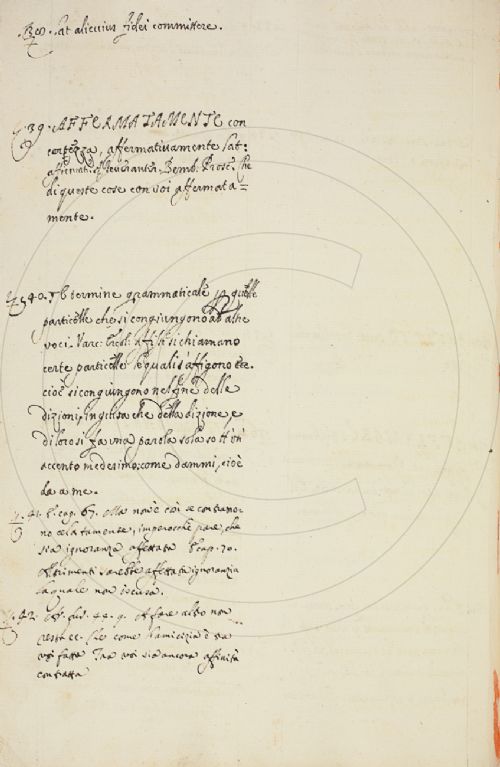 Lat alicuius fidei committere.
39. AFFERMATAMENTE con
certezza, affermativamente Lat:
Bemb. Pros. Che
di queste cose con voi affermata=
mente.
40. termine grammaticale
particelle che si congiungono ad altre
voci. Varc. Ercol. affissi si chiamano
certe particelle le quali s'affigono
cioè si congiungono nel fine delle
dizioni, in guisa che della dizione, e
di loro si fa una parola sola sott'un
accento medesimo: come dammi, cioè
da a me.
41. cap. 67. Ma non è così se
no celatamente, imperocchè pare, che
sia ignoranza affettata cap. 70.
Altrimenti sarebbe affettata ignoranza
la quale non iscusa.
42. Affare altro non
che come l'amicizia è tra
voi fatta Tra voi sia ancora affinità
contratta